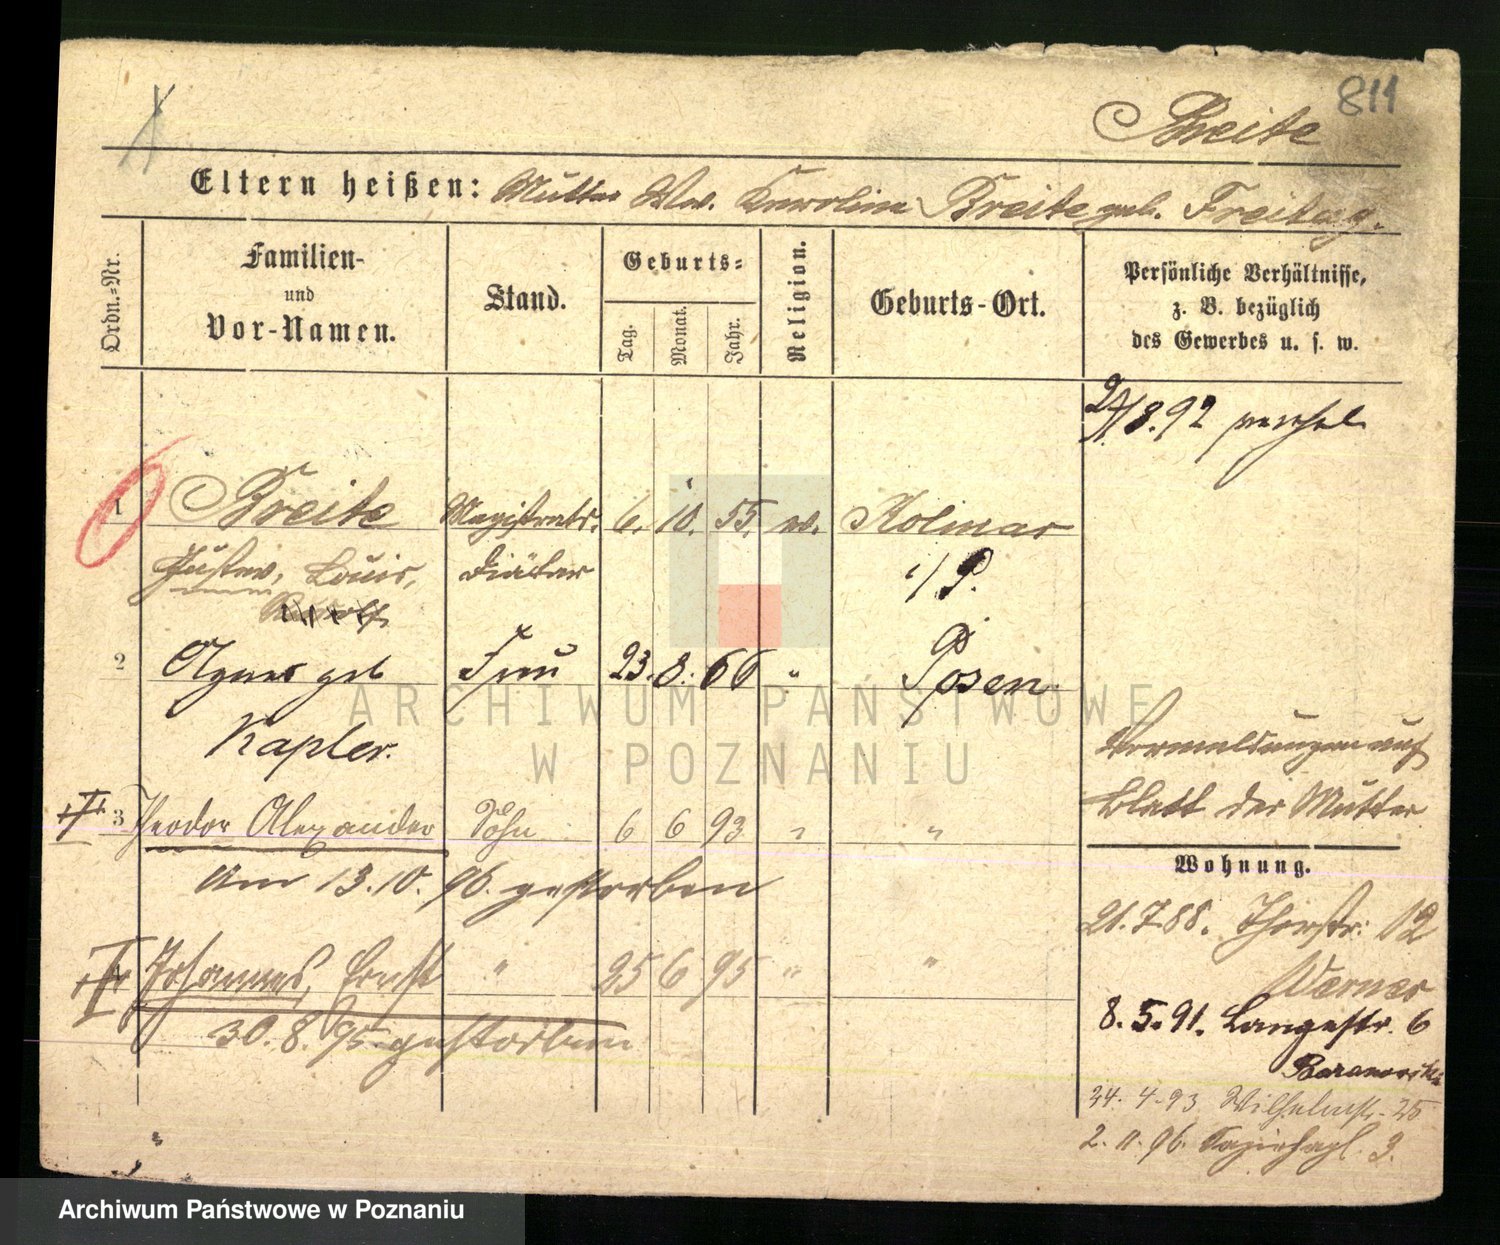 811
Breite
Eltern heißen: Mutter Ww. Karoline Breite geb. Freitag.
Ordn.-Nr.
Familien-
und
Vor-Namen.
Stand.
Geburts-
Tag.
Monat.
Jahr.
Religion.
Geburts-Ort.
Persönliche Verhältnisse,
z. B. bezüglich
des Gewerbes u. s. w.
8.92
1 Breite Magistrats- 6. 10. 55. ev. Kolmar
Gustav, Louis, Diätar i/P.
2 Agnes geb Frau 23. 8. 66 " Posen
Kapler.
Vermeldungen auf
Blatt der Mutter
3 Theodor Alexander Sohn 6 6 93 " "
Am 13.10.96. gestorben
Wohnung.
21.7.88. Thorstr. 12
Johannes, Ernst " 25 6 95 " "
Werner
30.8.95 gestorben
8.5.91. Langestr. 6
Baranowski
24.4.93 Wilhelmstr. 25
2.11.96. 3.
ARCHIWUM PAŃSTWOWE
W POZNANIU
Archiwum Państwowe w Poznaniu